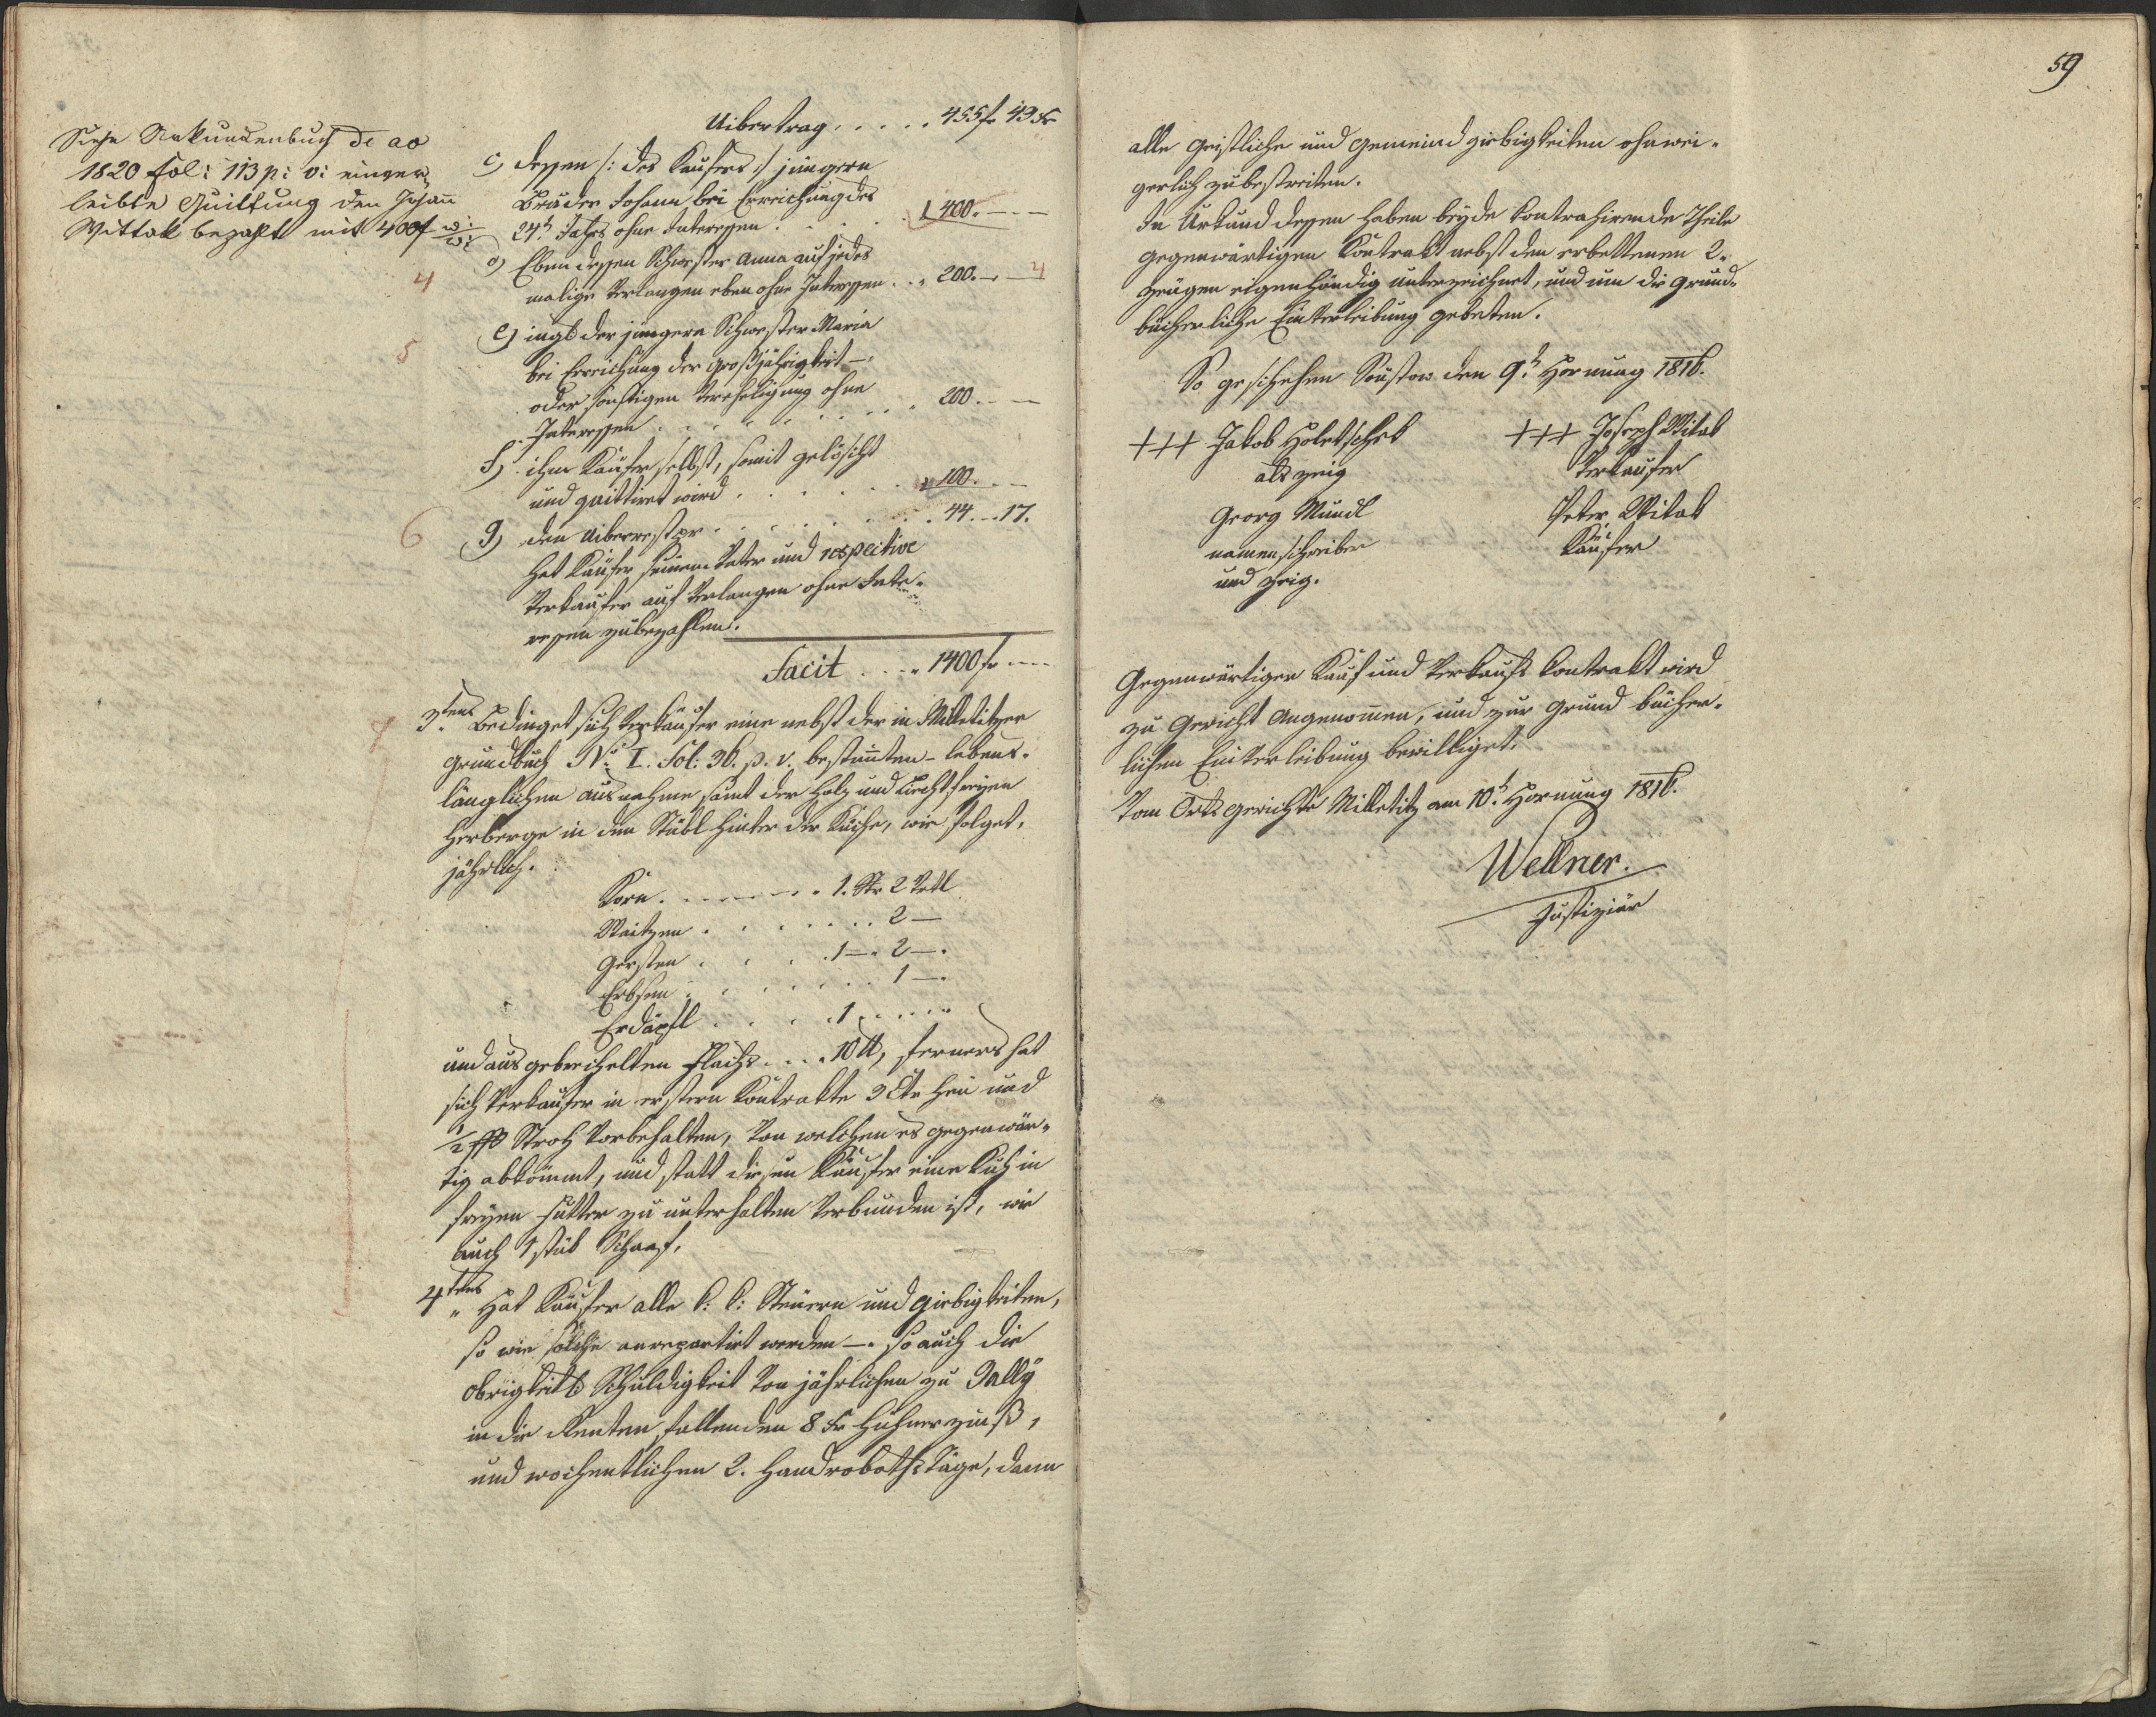 Siehe Urkundenbuch de ao
1820 Fol: 113 p: v: einver¬
leibte Quittung den Johan̄
Wittak bezahlt mit 400 f W: W:
Uibertrag . . . . . 455 f 43 Xr
c) dessen /: des Kaufers :/ jüngern
Bruder Johann bei Erreichung des
24t. Jahrs ohne Interessen . . . 400. — —
d) Eben dessen Schwester Anna auf jedes
malige Verlangen eben ohne Interessen . . „ 200. — — 4
4
e) ingl. der jüngern Schwester Maria
5
bei Erreichung der Großjährigkeit —
oder sonstigen Vereheligung ohne
Interessen . . . . . . . . „ 200. — —
f) ihm Käufer selbst, somit gelöscht
und quittiret wird . . . . . . 100. — —
6
g) den Uiberrest pr . . . . . . . 44. — 17.
hat Käufer seinem Vater und respective
Verkaufer auf Verlangen ohne Inte¬
ressen zubezahlen.
Facit . . . „ 1400 f — —
7
3tens Bedinget sich Verkäufer eine nebst der in Milletitzer
Grundbuch No. I. Fol: 36. p. v. bestim̄ten lebens¬
länglichen Ausnahme samt der Holz und Liechtfreyen
Herberge in dem Stübl hinter der Küche, wie folget,
jährlich.
Korn . . . . . . 1. Str 2 Vrtl
Waitzen . . . . . . . 2 —
Gersten . . . . 1 — „ 2 — .
Erbsen . . . . . . . 1 — .
Erdäpfl . . . . 1 . . . . .
und ausgebrechelten Flachs . . . 10 ℔, ferners hat
sich Verkaufer in erstern Kontrakte 3 Ctr Heu und
½ ßß Stroh Vorbehalten, Von welchen es gegenwär¬
tig abkömmt, und statt diesen Käufer eine Kuh in
freyen Futter zu unterhalten Verbunden ist, wie
auch 1 stük Schaaf.
4tens „ Hat Käufer alle k: k: Steüern und Giebigkeiten,
so wie solche anrepartirt werden —. so auch die
Obrigkeitl. Schuldigkeit Von jährlichen zu Gally
in die Renten fallenden 8 Xr Hühnerzinß,
und wochentlichen 2. Handroboths Täge, dann
59
alle geistliche und Gemeind Giebigkeiten ohnwei¬
gerlich zubestreiten.
In Urkund dessen haben beyde Kontrahirende Theile
gegenwärtigen Kontrakt nebst den erbettenen 2.
Zeügen eigenhändig unterzeichnet, und um die Grund¬
bücherliche Einverleibung gebeten.
So geschehen Soustow den 9t. Hornung 1816.
+++ Jakob Holetschek
als Zeig
Georg Mundl
namenschreiber
und Zeig.
+++ Joseph Witak
Verkaufer
Peter Witak
Käufer
Gegenwärtiger Kauf und Verkaufs Contrakt wird
zu Gericht Angenom̄en, und zur Grund bücher¬
lichen Einverleibung bewilliget.
Vom Ortsgerichte Milletitz am 10t. Hornung 1816.
Wellner.
Justiziär